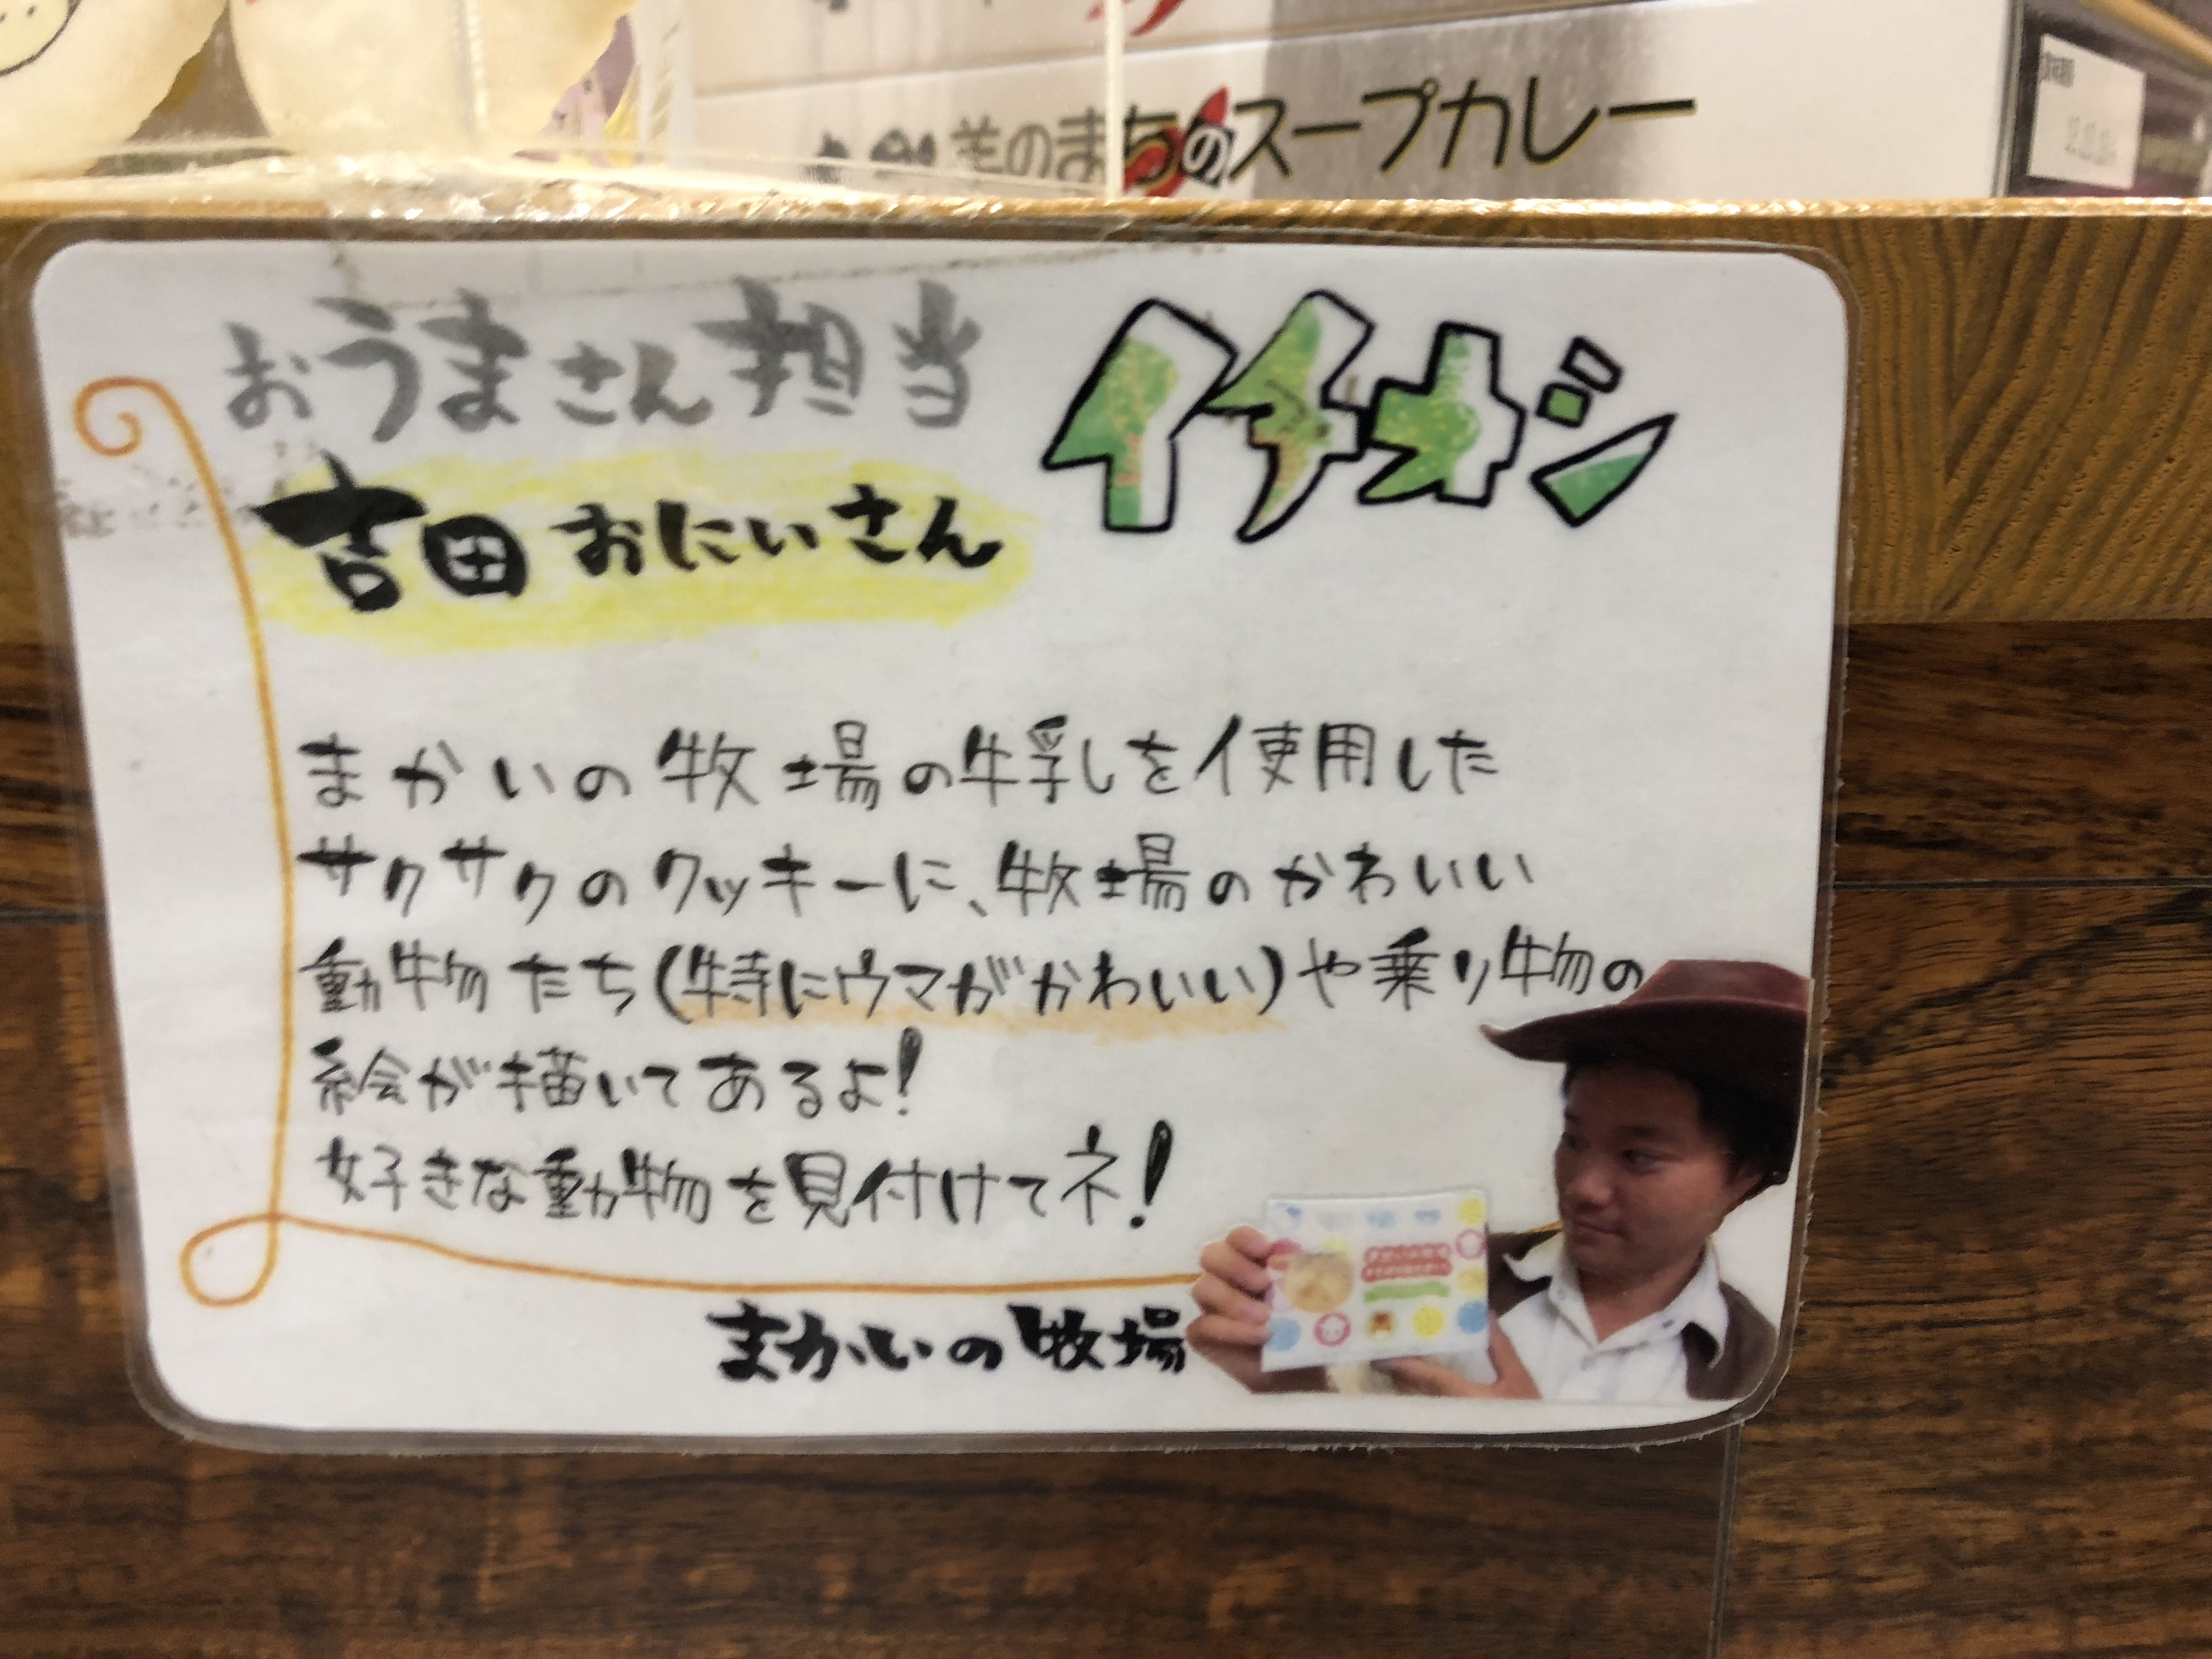 羊のまちのスープカレー
おうまさん担当 イチオシ
吉田おにいさん
まかいの牧場の牛乳を使用した
サクサクのクッキーに、牧場のかわいい
動物たち(特にウマがかわいい)や乗り物の
絵が描いてあるよ!
好きな動物を見付けてネ!
まかいの牧場